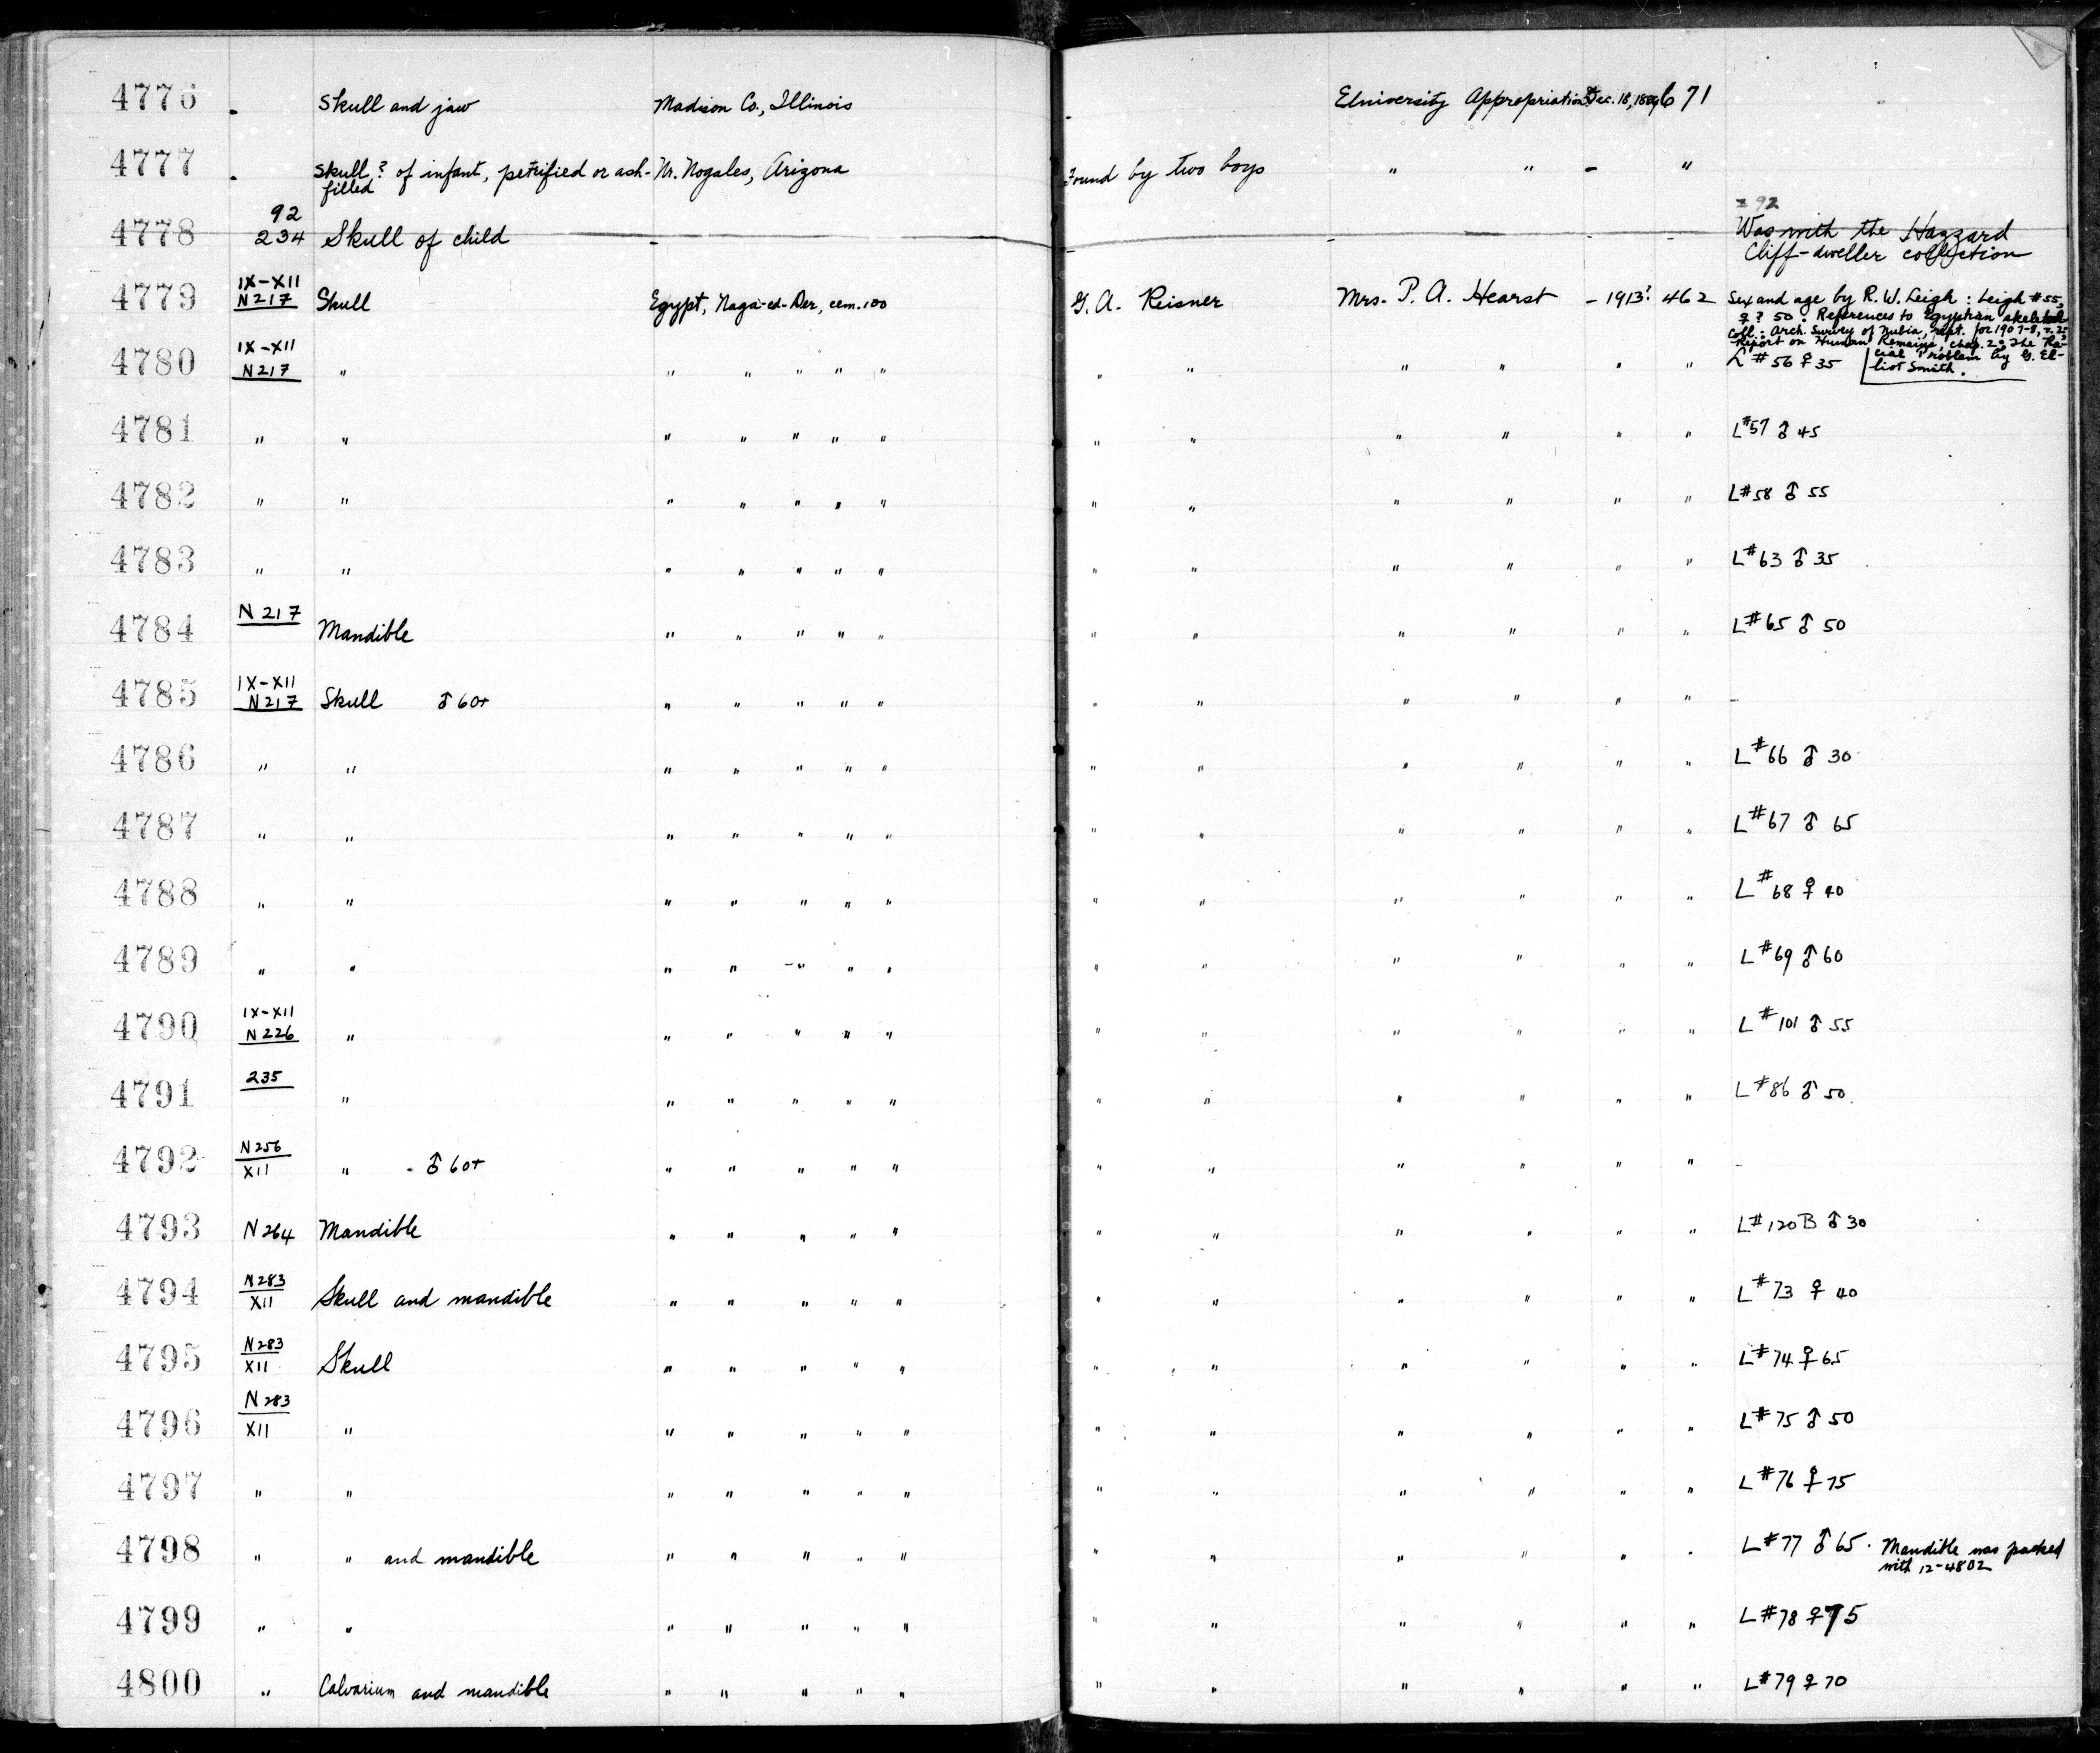 4776 . Skull and jaw Madison Co., Illinois - University Appropriation Dec. 18, 671
4777 . Skull? of infant, petrified or ash- Nr. Nogales, Arizona Found by two boys " " - "
filled
92 92
4778 234 Skull of child - - - - - Was with the Hazzard
Cliff-dweller collection
IX-XII
4779 N217 Skull Egypt, Naga-ed-Der, cem. 100 G. A. Reisner Mrs. P. A. Hearst - 1913? 462 Sex and age by R. W. Leigh: Leigh #55,
♀? 50. References to Egyptian skeletal
Coll.: Arch. Survey of Nubia, rept. for 1907-8, v. 2:
Report on Human Remains, chap. 2: The Ra-
cial Problem by G. El-
liot Smith.
IX-XII
4780 N217 " " " " " " " " " " " " L #56 ♀ 35
4781 " " " " " " " " " " " " " L#57 ♂ 45
4782 " " " " " " " " " " " " " L#58 ♂ 55
4783 " " " " " " " " " " " " " L#63 ♂ 35
4784 N217 Mandible " " " " " " " " " " " L#65 ♂ 50
IX-XII
4785 N217 Skull ♂ 60+ " " " " " " " " " " " -
4786 " " " " " " " " " " " " " L#66 ♂ 30
4787 " " " " " " " " " " " " " L#67 ♂ 65
4788 " " " " " " " " " " " " " L#68 ♀ 40
4789 " " " " " " " " " " " " " L#69 ♂ 60
IX-XII
4790 N226 " " " " " " " " " " " " L#101 ♂ 55
4791 235 " " " " " " " " " " " " L#86 ♂ 50.
N256
4792 XII " - ♂ 60+ " " " " " " " " " " " -
4793 N264 Mandible " " " " " " " " " " " L#120B ♂ 30
N283
4794 XII Skull and mandible " " " " " " " " " " " L#73 ♀ 40
N283
4795 XII Skull " " " " " " " " " " " L#74 ♀ 65
N283
4796 XII " " " " " " " " " " " " L#75 ♂ 50
4797 " " " " " " " " " " " " " L#76 ♀ 75
4798 " " and mandible " " " " " " " " " " " L#77 ♂ 65. Mandible was packed
with 12-4802
4799 " " " " " " " " " " " " " L#78 ♀ 75
4800 " Calvarium and mandible " " " " " " " " " " " L#79 ♀ 70